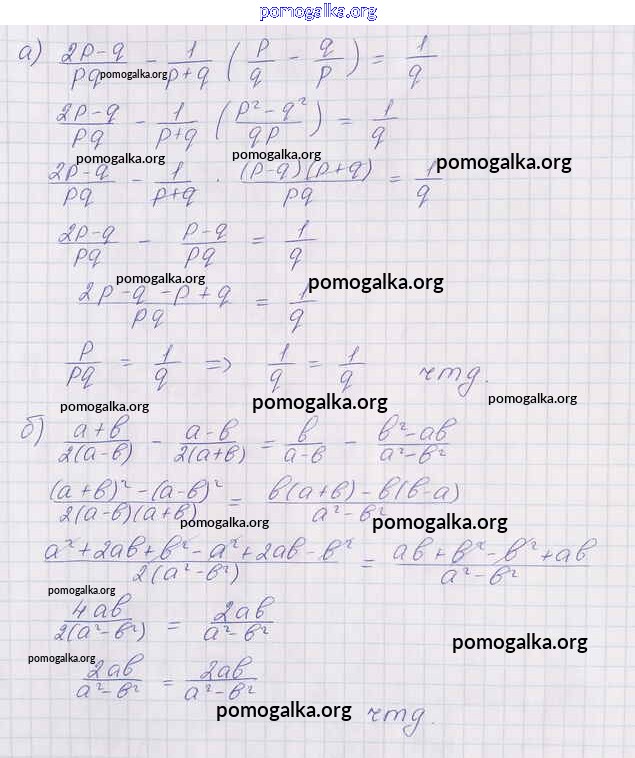 pomogalka.org
а) (2p-q)/(pq) - 1/(p+q) (p/q - q/p) = 1/q
pomogalka.org
(2p-q)/(pq) - 1/(p+q) ((p²-q²)/(qp)) = 1/q
pomogalka.org pomogalka.org pomogalka.org
(2p-q)/(pq) - 1/(p+q) · ((p-q)(p+q))/(pq) = 1/q
(2p-q)/(pq) - (p-q)/(pq) = 1/q
pomogalka.org pomogalka.org
(2p-q-p+q)/(pq) = 1/q
p/(pq) = 1/q => 1/q = 1/q чтд.
pomogalka.org pomogalka.org pomogalka.org
б) (a+b)/(2(a-b)) - (a-b)/(2(a+b)) = b/(a-b) - (b²-ab)/(a²-b²)
((a+b)²-(a-b)²)/(2(a-b)(a+b)) = (b(a+b)-b(b-a))/(a²-b²)
pomogalka.org pomogalka.org
(a²+2ab+b²-a²+2ab-b²)/(2(a²-b²)) = (ab+b²-b²+ab)/(a²-b²)
pomogalka.org
(4ab)/(2(a²-b²)) = (2ab)/(a²-b²)
pomogalka.org
pomogalka.org
(2ab)/(a²-b²) = (2ab)/(a²-b²)
pomogalka.org чтд.